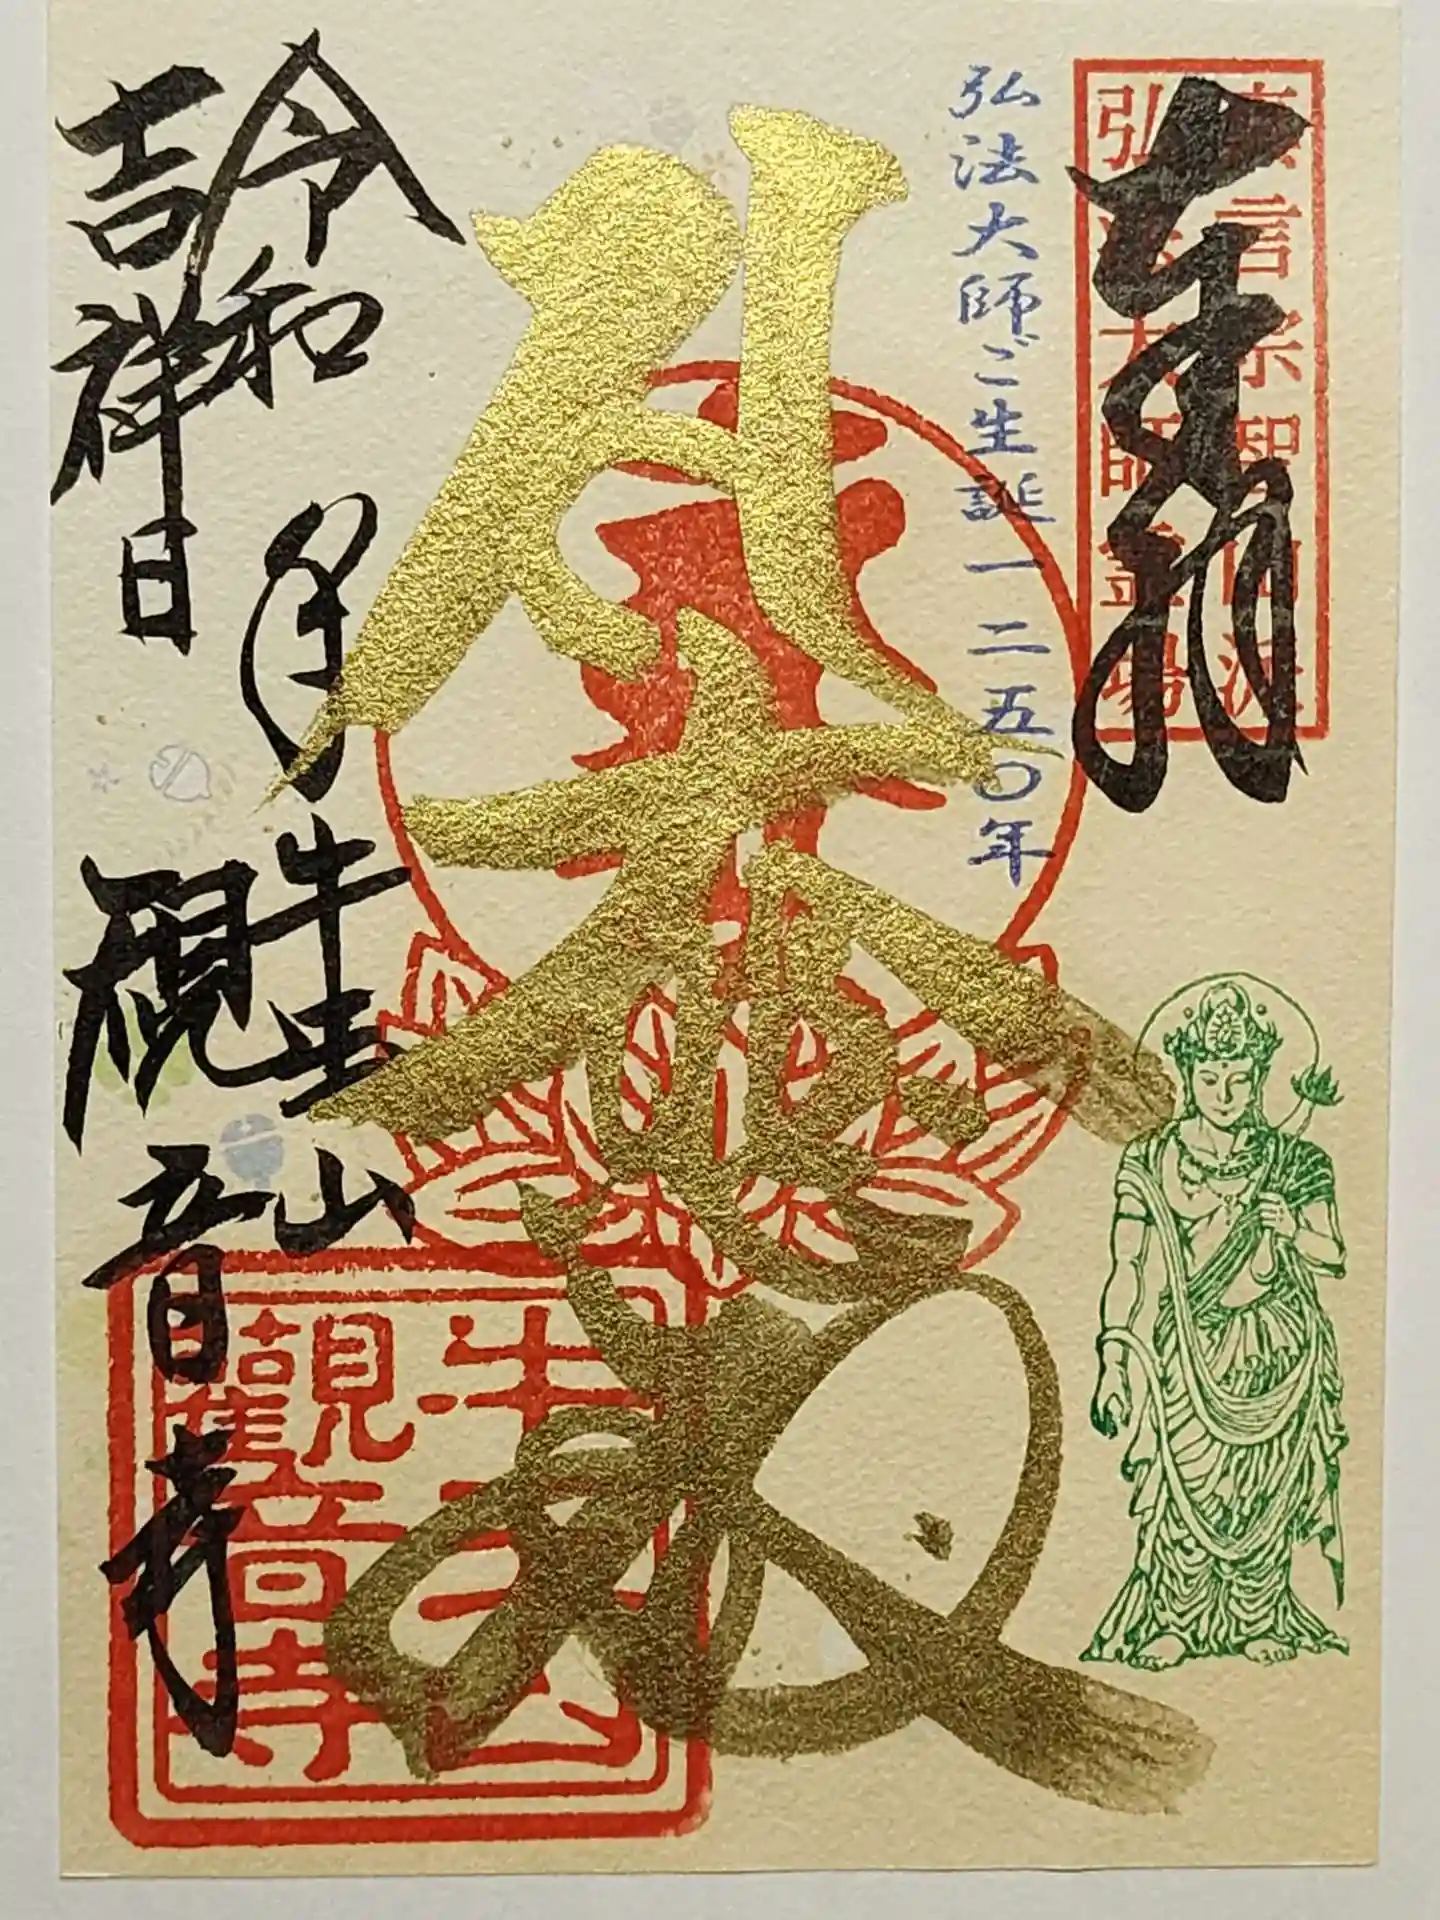 真言宗智山派
弘法大師霊場
奉拝
弘法大師ご生誕一二五〇年
大悲殿
令和 年 牛王山
吉祥日 観音寺
牛王山
觀音寺